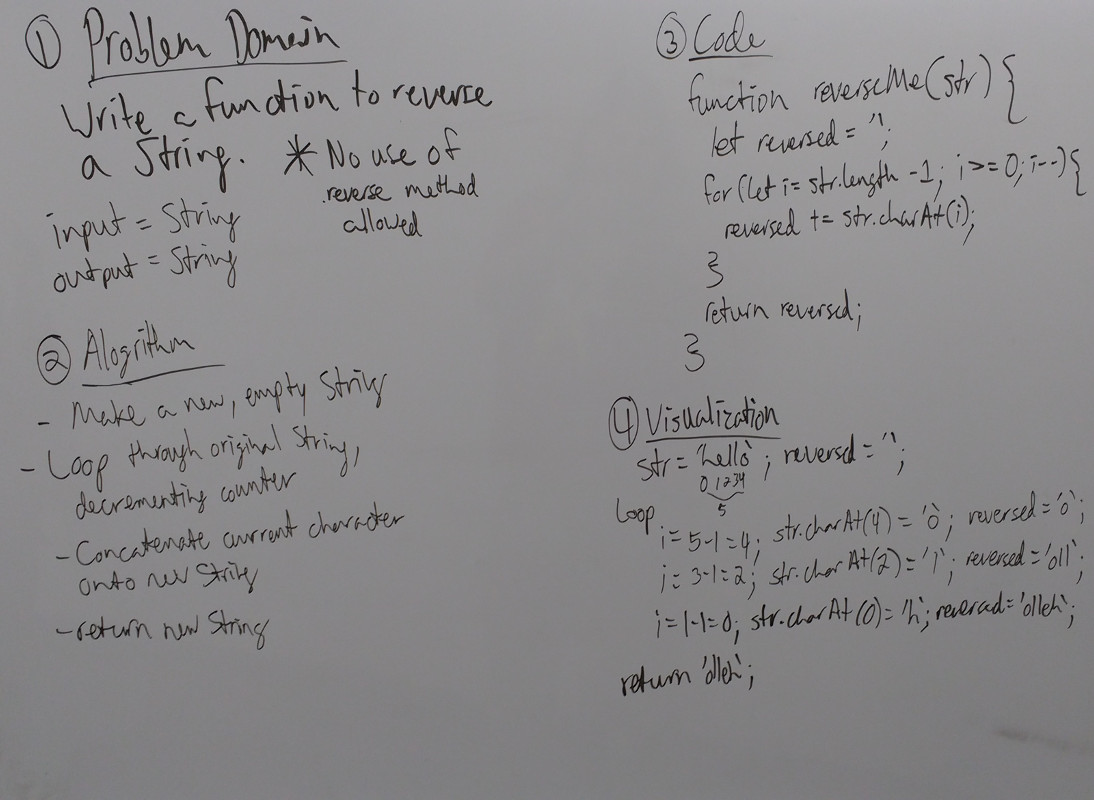 ① Problem Domain
Write a function to reverse
a String.
* No use of
reverse method
allowed
input = String
output = String
② Alogrithm
- Make a new, empty String
- Loop through original String,
decrementing counter
- Concatenate current character
onto new String
- return new String
③ Code
function reverseMe(str) {
let reversed = '';
for (let i = str.length -1; i >= 0; i--) {
reversed += str.charAt(i);
}
return reversed;
}
④ Visualization
str = 'hello'; reversed = '';
0 1 2 3 4
5
Loop
i = 5-1=4; str.charAt(4) = 'o'; reversed = 'o';
i = 3-1=2; str.charAt(2) = 'l'; reversed = 'oll';
i = 1-1=0; str.charAt(0) = 'h'; reversed = 'olleh';
return 'olleh';